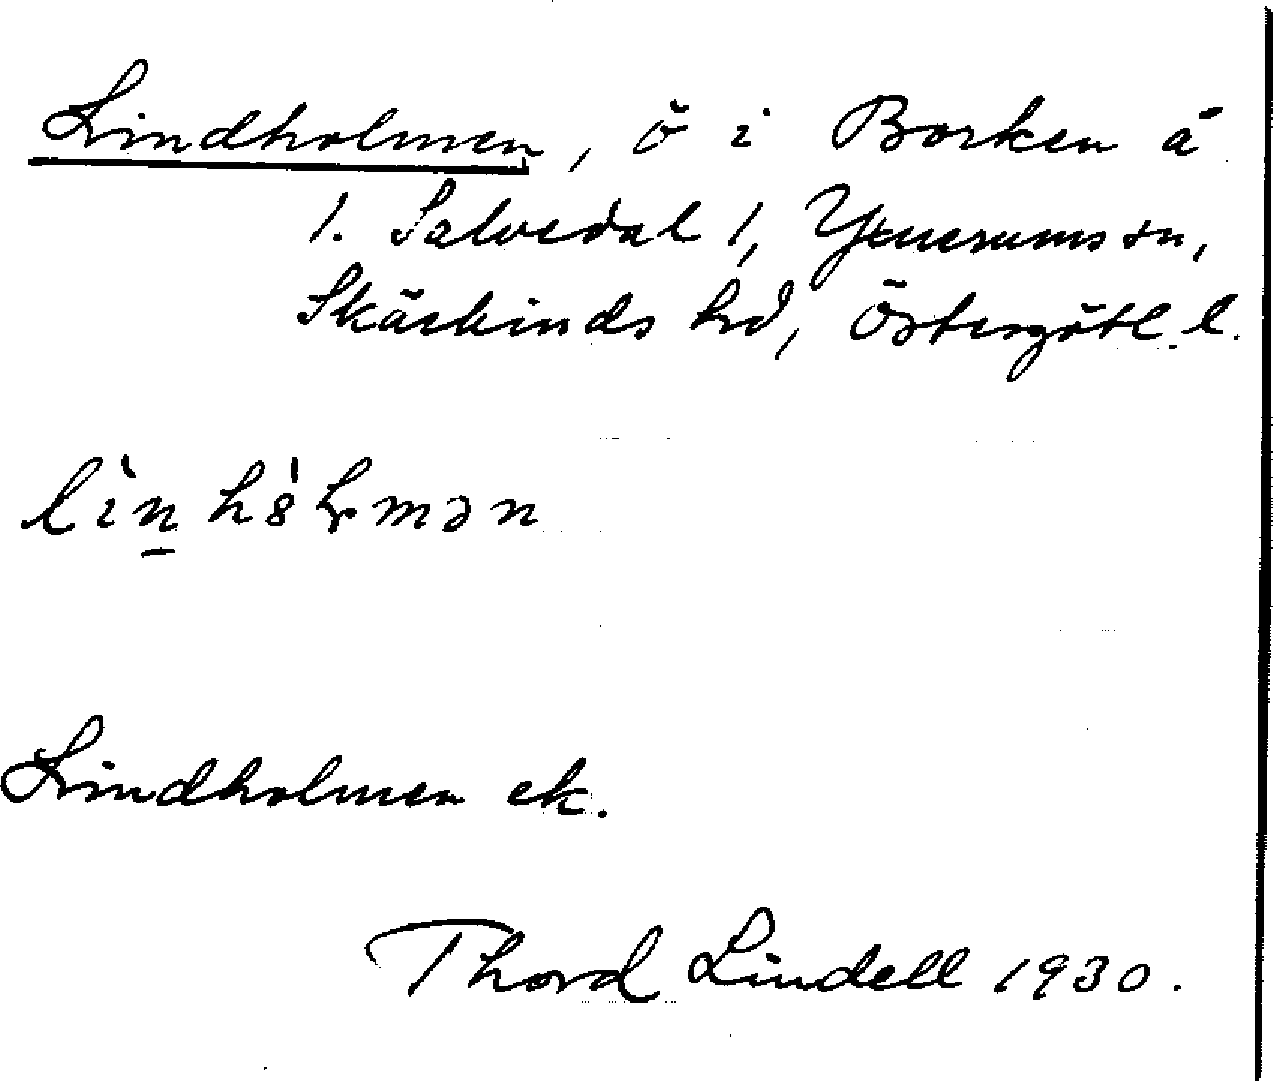 Lindholmen, ö i Borken å
1. Salvedal 1, Yxnerums sn,
Skärkinds hd, Östergötl. l.
lìn hòlmən
Lindholmen ek.
Thord Lindell 1930.